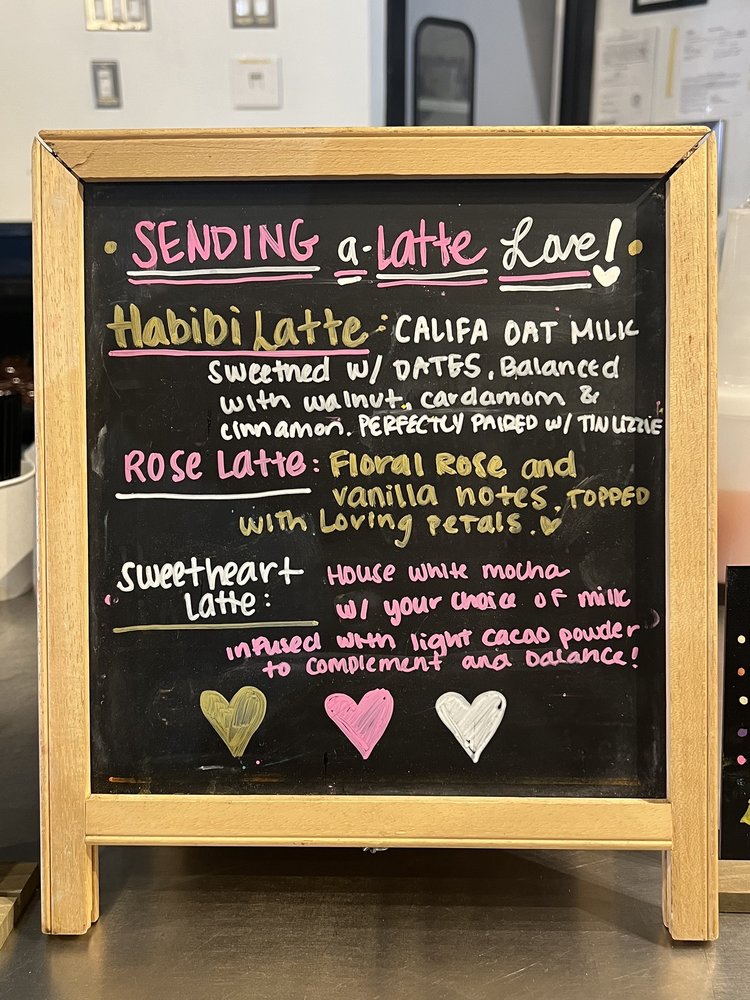 SENDING a-Latte Love!
Habibi Latte: CALIFA OAT MILK
sweetned w/ DATES. Balanced
with walnut, cardamom &
cinnamon. PERFECTLY PAIRED w/ TIN LIZZIE
ROSE Latte: Floral Rose and
vanilla notes. TOPPED
with Loving petals.
Sweetheart House white mocha
Latte: w/ your choice of milk
infused with light cacao powder
to complement and balance!